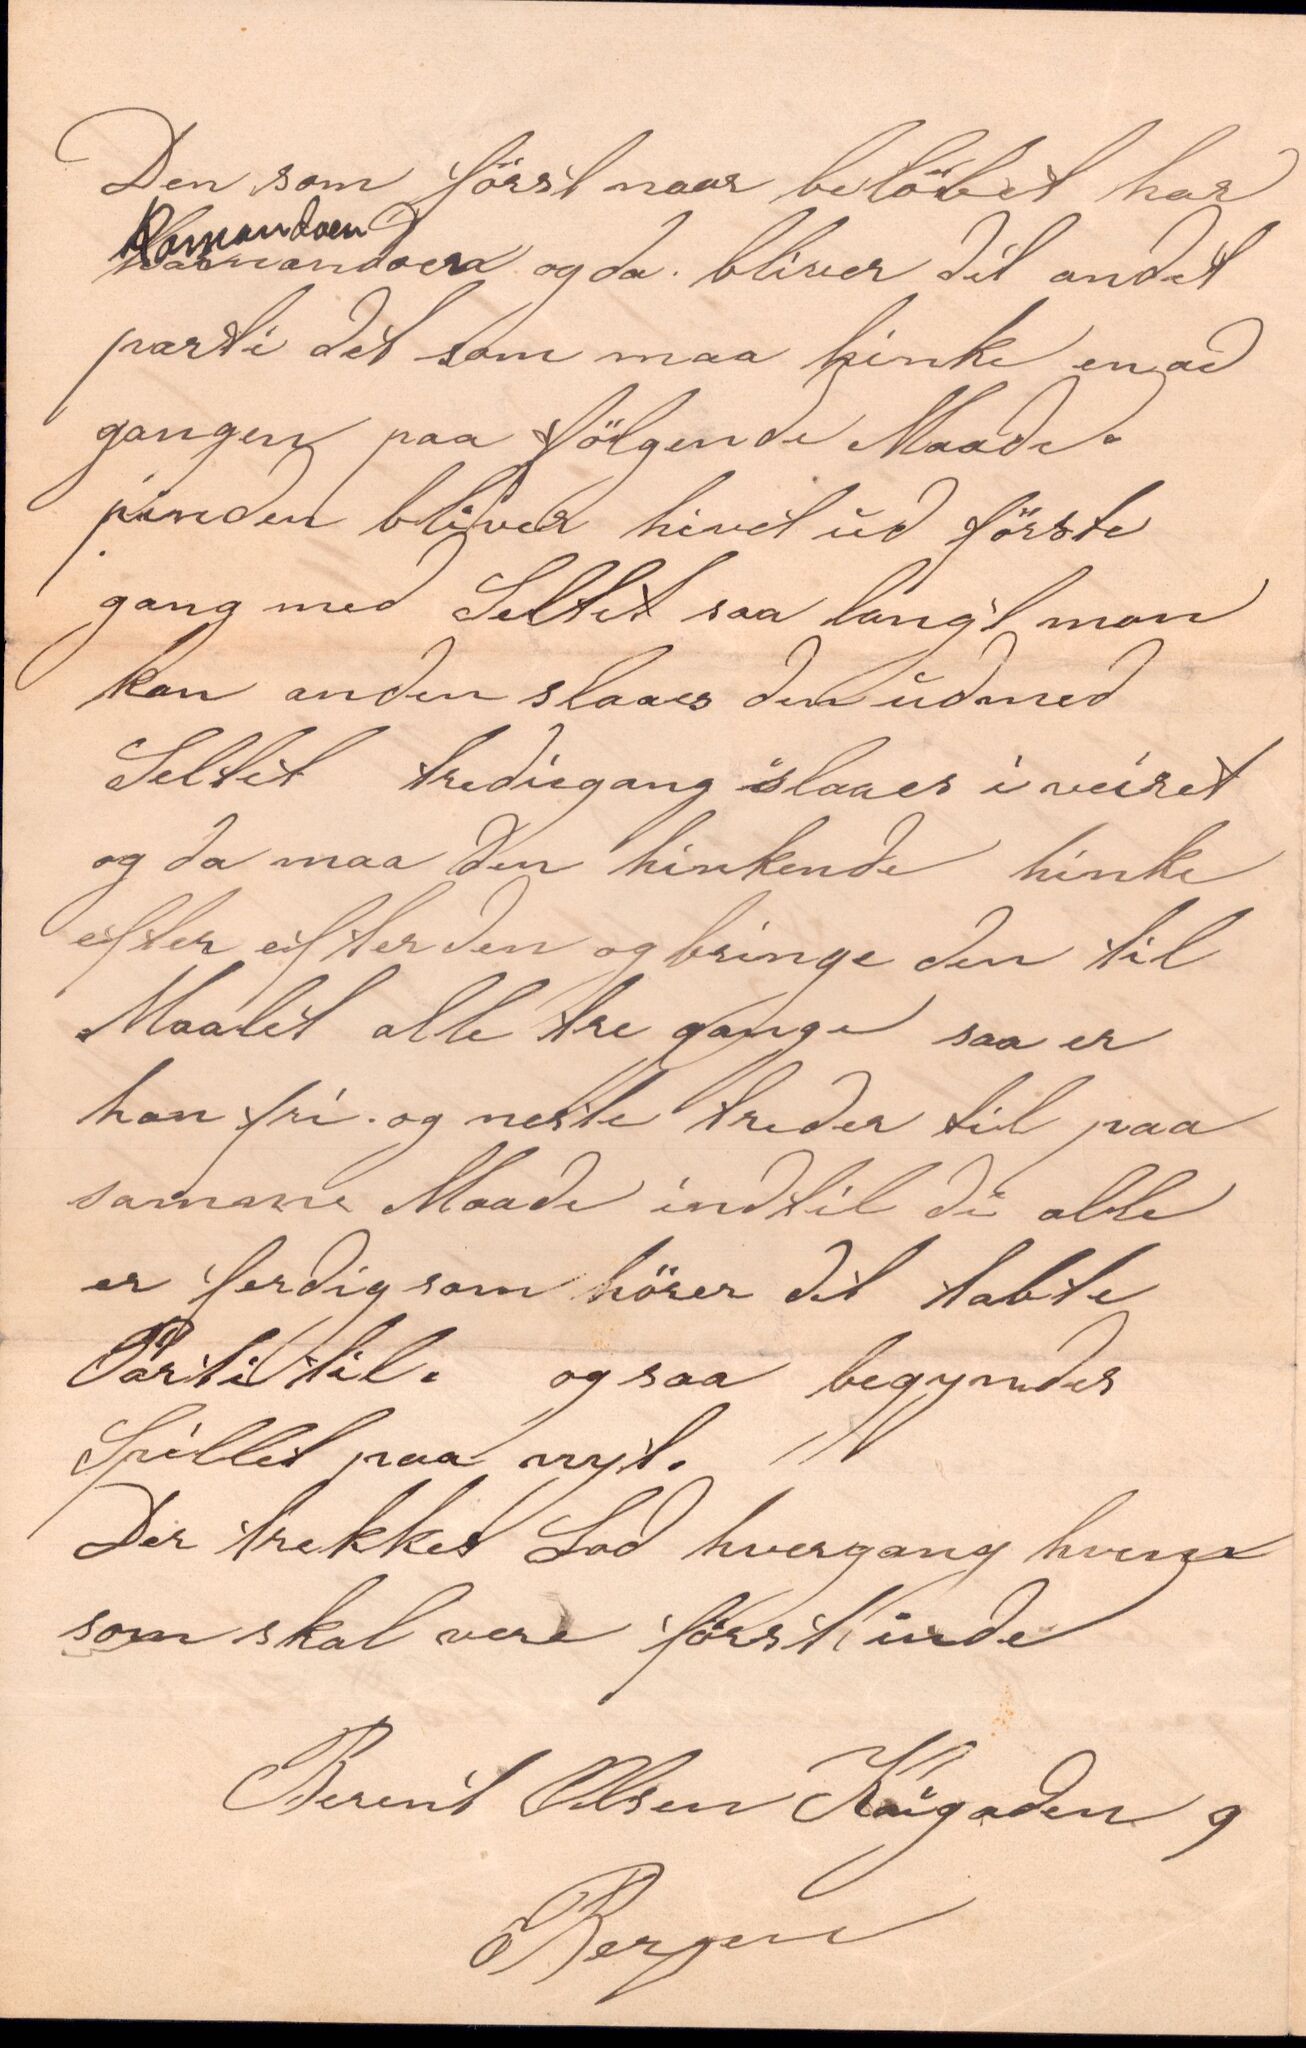 Den som först naar belöbet har
Komandoen
Kaamandoen og da. bliver det andet
parti det som maa hinke en ad
gangen paa følgende Maade.
pinden bliver hivet ud förste
gang med Seltet saa langt man
kan anden slaaes den ud med
Seltet trediegang slaaes i veiret
og da maa den hinkende hinke
efter efter den og bringe den til
Maalet alle tre gange saa er
han fri. og neste treder til paa
samme Maade indtil di alle
er ferdig som hörer det tabte
Parti til. og saa begyndes
Spillet paa nyt.
Der trekkes Lod hvergang hvem
som skal vere först inde
Berent Olsen Kaigaden 9
Bergen